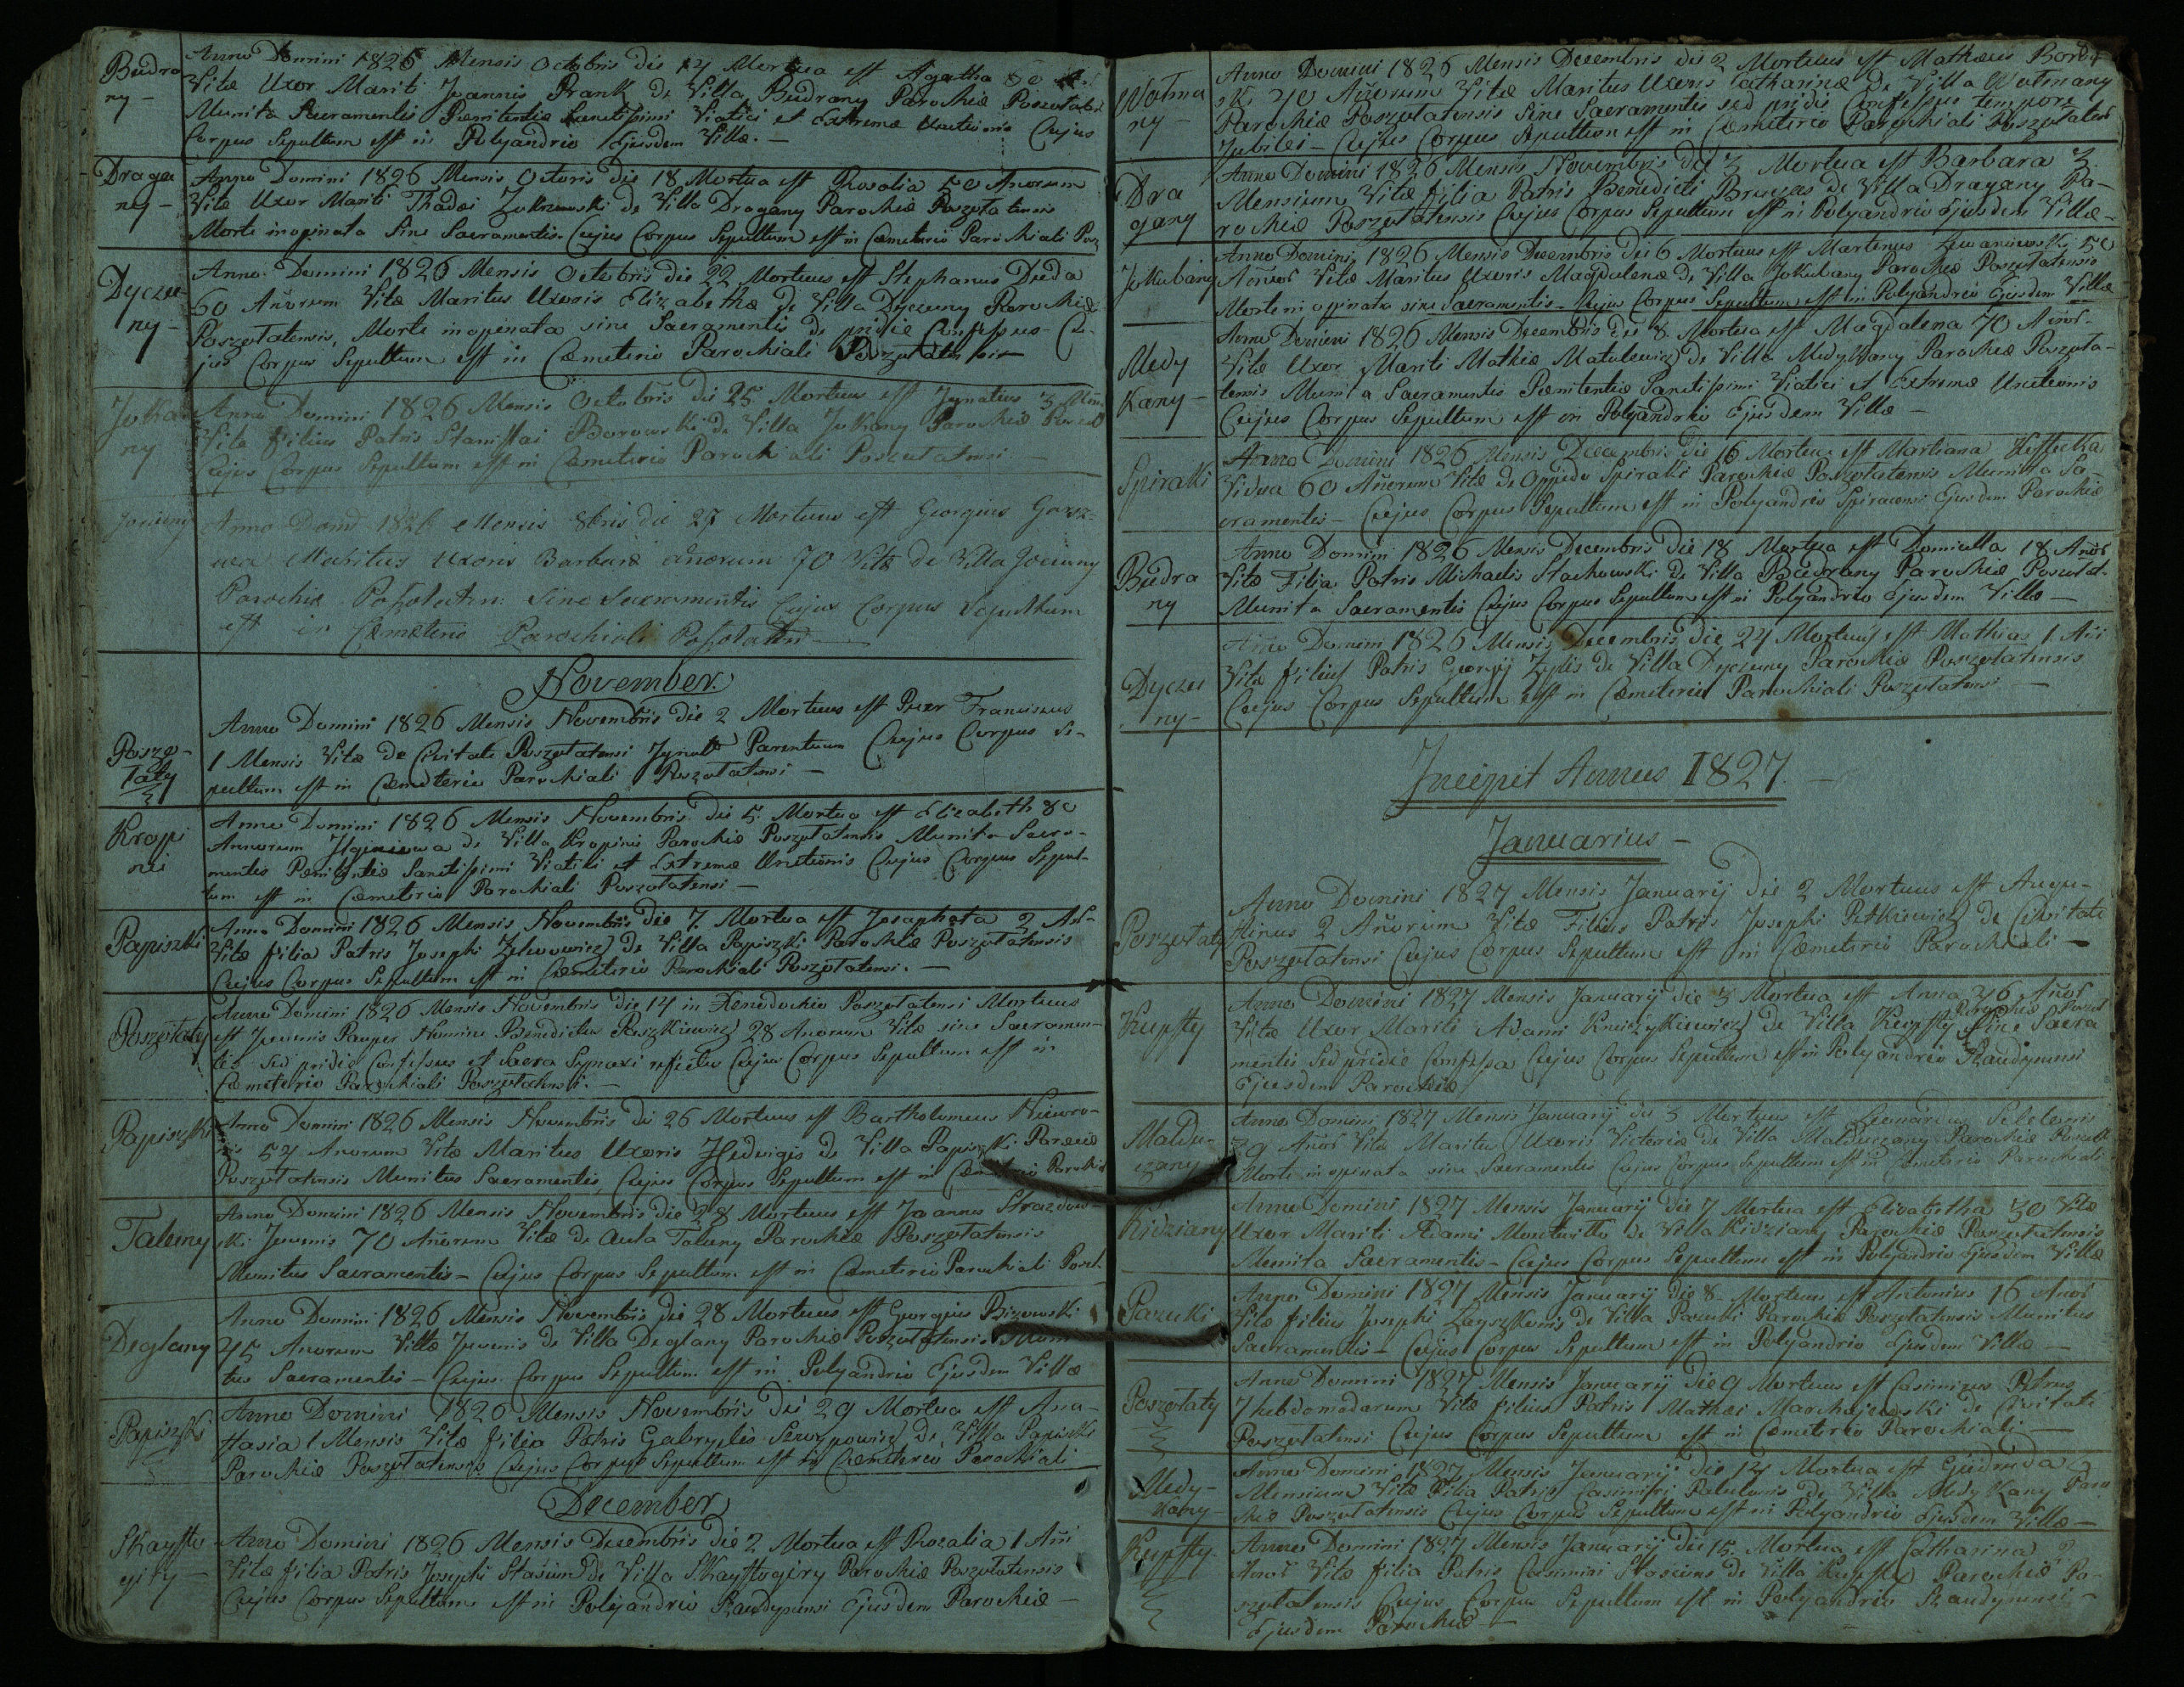 Budra
ny -
Anno Domini 1826 Mensis Octobris die 14 Mortua est Agatha
Vitæ Uxor Mariti Joannis Prank de Villa Budrany Parochiæ
Munita Sacramentis Pœnitentiæ Sanctissimi Viatici et Extremæ Unctionis Cujus
Corpus Sepultum est in Polyandrio Ejusdem Villæ. -
Draga
ny -
Anno Domini 1826 Mensis Octoris die 18 Mortua est Rosalia 50 Anorum
Vitæ Uxor Mariti Thadæi de Villa Dragany Parochiæ Poszołatensis
Morte inopinata Sine Sacramentis Cujus Corpus Sepultum est in Cœmeterio Parochiali Posz
Dyczu
ny -
Anno Domini 1826 Mensis Octobris die 22 Mortuus est Stephanus Dieda
60 Añorum Vitæ Maritus Uxoris Elizabethæ de Villa Dyczuny Parochiæ
Poszołatensis, Morte inopinata sine Sacramentis de pridie Confessus - Cu-
jus Corpus Sepultum est in Cœmeterio Parochiali Poszołatensi -
Jokań
ny
Anno Domini 1826 Mensis Octobris die 25 Mortuus est Ignatius 3 Mens
Vitæ filius Patris Stanislai Borowski de Villa Jokany Parochiæ
Cujus Corpus Sepultum est in Cœmeterio Parochiali Poszołatensi -
Anno Domi 1826 Mensis 8bris die 27 Mortuus est Georgius Garsz-
wa Maritus Uxoris Barbaræ Anorum 70 Vitæ de Villa
Parochiæ Sine Sacramentis Cujus Corpus Sepultum
est in Cæmeterio Parochiali
November
Poszo-
łaty
Anno Domini 1826 Mensis Novembris die 2 Mortuus est Puer Franciscus
1 Mensis Vitæ de Civitate Poszołatensi Ignoto Parentum Cujus Corpus Se-
pultum est in Cœmeterio Parochiali Poszołatensi -
Kropi
nie
Anno Domini 1826 Mensis Novembris die 5 Mortua est Elizabeth 80
Annorum de Villa Kropinie Parochiæ Poszołatensis Munita Sacra-
mentis Pœnitentiæ Sanctissimi Viatici et Extremæ Unctionis Cujus Corpus Sepul-
tum est in Cœmeterio Parochiali Poszołatensi -
Papiszki
Anno Domini 1826 Mensis Novembris die 7 Mortua est Josaphata 2 An-
Vitæ filia Patris Josephi de Villa Papiszki Parochiæ Poszołatensis
Cujus Corpus Sepultum est in Cœmeterio Parochiali Poszołatensi. -
Poszołaty
Anno Domini 1826 Mensis Novembris die 14 in Xenodochio Poszołatensi Mortuus
est Juvenis Pauper Nomine Benedictus Paszkiewicz 28 Anorum Vitæ sine Sacramen-
tis sed pridie Confessus et Sacra Synaxi refectus Cujus Corpus Sepultum est in
Cæmeterio Parochiali Poszołatensi. -
Papiszki
Anno Domini 1826 Mensis Novembris die 26 Mortuus est Bartholomeus Niewro-
54 Anorum Vitæ Maritus Uxoris Hedvigis de Villa Papiszki Parociæ
Poszołatensis Munitus Sacramentis, Cujus Corpus Sepultum est in Cœmeterio Parochiali
Taluny
Anno Domini 1826 Mensis Novembris die 28 Mortuus est Joannes Strazdow-
ski Juvenis 70 Añorum Vitæ de Aula Taluny Parochiæ Poszołatensis
Munitus Sacramentis - Cujus Corpus Sepultum est in Cœmeterio Parochiali Poszł.
Deglany
Anno Domini 1826 Mensis Novembris die 28 Mortuus est Georgius
45 Anorum Vittæ Juvenis de Villa Deglany Parochiæ Poszołatensis Muni
tus Sacramentis - Cujus Corpus Sepultum est in Polyandrio Ejusdem Villæ
Papiszki
Anno Domini 1826 Mensis Novembris die 29 Mortua est Ana-
stasia 1 Mensis Vitæ filia Patris Gabryelis de Villa Papiszki
Parochiæ Poszołatensis Cujus Corpus Sepultum est in Cœmeterio Parochiali
December
Skaysto
giry
Anno Domini 1826 Mensis Decembris die 2 Mortua est Rozalia 1 Añi
Vitæ filia Patris Josephi Stasiun de Villa Skaystogiry Parochiæ Poszołatensis
Cujus Corpus Sepultum est in Polyandrio Raudynensi Ejusdem Parochiæ -
Wotma
ny -
Anno Domini 1826 Mensis Decembris die 2 Mortuus est Mathæus
ski 40 Añorum Vitæ Maritus Uxoris Catharinæ de Villa Wotmany
Parochiæ Poszołatensis Sine Sacramentis sed pridie Confessus tempore
Jubilei - Cujus Corpus Sepultum est in Cœmeterio Parochiali Poszołatens
Dra
gany
Anno Domini 1826 Mensis Novembris die 3 Mortua est Barbara 3
Mensium Vitæ filia Patris Benedicti de Villa Dragany Pa-
rochiæ Poszołatensis Cujus Corpus Sepultum est in Polyandrio Ejusdem Villæ -
Jokubany
Anno Domini 1826 Mensis Decembris die 6 Mortuus est Martinus Lewaniewski 50
Añor Vitæ Maritus Uxoris Magdalenæ de Villa Jokubany Parochiæ Poszołatensis
Morte inopinata sine Sacramentis - Cujus Corpus Sepultum est in Polyandrio Ejusdem Villæ
Medy
kany -
Anno Domini 1826 Mensis Decembris die 8 Mortua est Magdalena 70 Añor-
Vitæ Uxor Mariti Mathiæ Matulewicz de Villa Medykany Parochiæ Poszoła-
tensis Munita Sacramentis Pœnitentiæ Sanctissimi Viatici et Extremæ Unctionis
Cujus Corpus Sepultum est in Polyandrio Ejusdem Villæ -
Spirakli
Anno Domini 1826 Mensis Decembris die 16 Mortua est Martiana
Vidua 60 Añorum Vitæ de Oppido Spirakli Parochiæ Poszołatensis Munita Sa-
cramentis - Cujus Corpus Sepultum est in Polyandrio Ejusdem Parochiæ
Budra
ny
Anno Domini 1826 Mensis Decembris die 18 Mortua est Domicella 18 Añor
Vitæ Filia Patris Michaelis Stachowski de Villa Budrany Parochiæ Poszołat-
Munita Sacramentis Cujus Corpus Sepultum est in Polyandrio Ejusdem Villæ -
Dyczu
ny -
Año Domini 1826 Mensis Decembris die 24 Mortuus est Mathias 1 Añi
Vitæ filius Patris Georgij Zylis de Villa Dyczuny Parochiæ Poszołatensis
Cujus Corpus Sepultum est in Cœmeterio Parochiali Poszołatensi -
Incipit Annus 1827. -
Januarius -
Poszołaty
Anno Domini 1827 Mensis Januarij die 2 Mortuus est Augu-
stinus 2 Añorum Vitæ Filius Patris Josephi Petkiewicz de Civitate
Poszołatensi Cujus Corpus Sepultum est in Cœmeterio Parochiali -
Kupsty
Anno Domini 1827 Mensis Januarij die 3 Mortua est Anna 36 Añor
Vitæ Uxor Mariti Adami de Villa Kupsty Parochiæ Poszoł Sine Sacra
mentis Sed pridie Confessa Cujus Corpus Sepultum est in Polyandrio Raudynensi
Ejusdem Parochiæ
Maldu-
czany
Anno Domini 1827 Mensis Januarij die 3 Mortuus est Leonardus
39 Añor Vitæ Maritus Uxoris Victoriæ de Villa Malduczany Parochiæ
Morte inopinata sine Sacramentis Cujus Corpus Sepultum est in Cœmeterio Parochiali
Kidziany
Anno Domini 1827 Mensis Januarij die 7 Mortua est Elisabetha 30 Vitæ
Uxor Mariti Adami Montwitto de Villa Kidziany Parochiæ Poszołatensis
Munita Sacramentis - Cujus Corpus Sepultum est in Polyandrio Ejusdem Villæ
Paruki
Anno Domini 1827 Mensis Januarij die 8 Mortuus est Antonius 16 Añor
Vitæ filius Josephi de Villa Paruki Parochiæ Poszołatensis Munitus
Sacramentis - Cujus Corpus Sepultum est in Polyandrio Ejusdem Villæ -
Poszołaty
Anno Domini 1827 Mensis Januarij die 9 Mortuus est Casimirus Petrus
7 hebdomadarum Vitæ filius Patris Mathæi de Civitate
Poszołatensi Cujus Corpus Sepultum est in Cœmeterio Parochiali -
Medy-
kany -
Anno Domini 1827 Mensis Januarij die 14 Mortua est Giedruda
Mensium Vitæ Filia Patris Casimiri de Villa Medykany Paro
chiæ Poszołatensis Cujus Corpus Sepultum est in Polyandrio Ejusdem Villæ -
Kupsty
Anno Domini 1827 Mensis Januarij die 15 Mortua est Catharina 2
Añor Vitæ filia Patris Casimiri Stasiuns de Villa Kupsty Parochiæ Po-
szołatensis Cujus Corpus Sepultum est in Polyandrio Raudynensi -
Ejusdem Parochiæ -